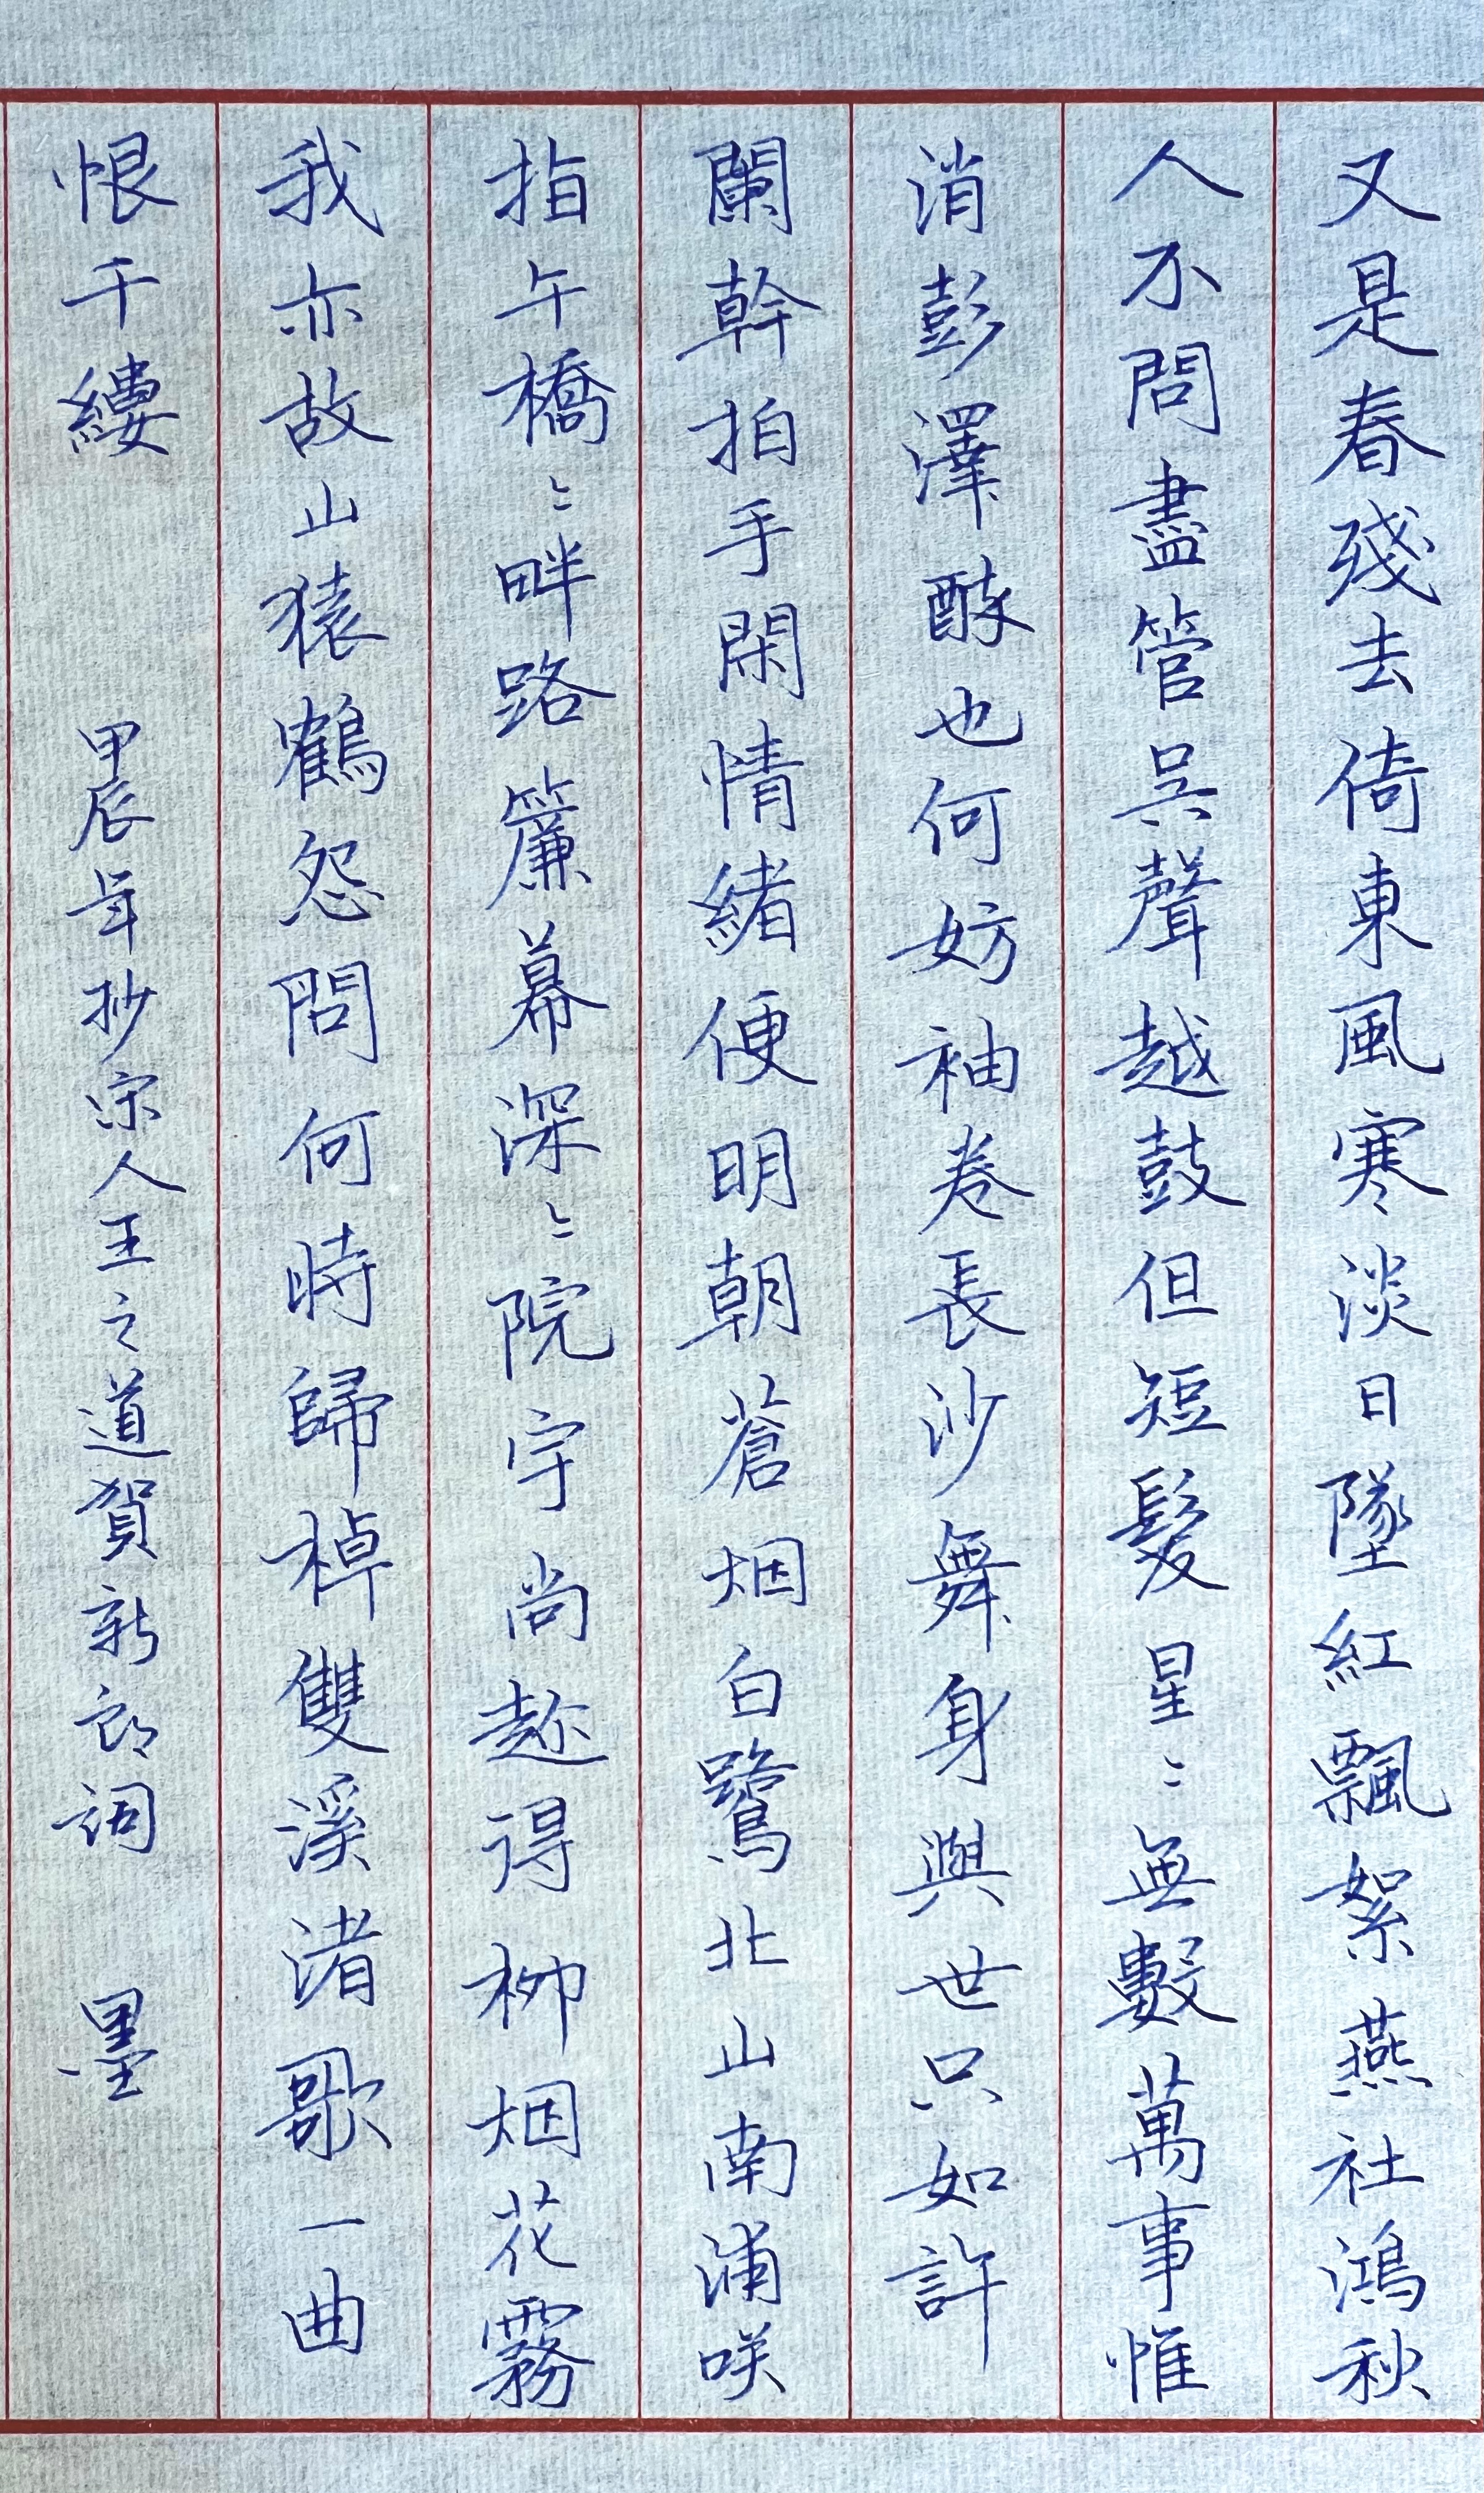 又是春殘去倚東風寒淡日墜紅飄絮燕社鴻秋
人不問盡管吴聲越鼓但短髮星〻無數萬事惟
消彭澤醉也何妨袖卷長沙舞身與世只如許
闌幹拍手閑情緒便明朝蒼烟白鷺北山南浦笑
指午橋〻畔路簾幕深〻院宇尚趂得柳烟花霧
我亦故山猿鶴怨問何時歸棹雙溪渚歌一曲
恨千縷 甲辰年抄宋人王之道賀新郎詞 墨